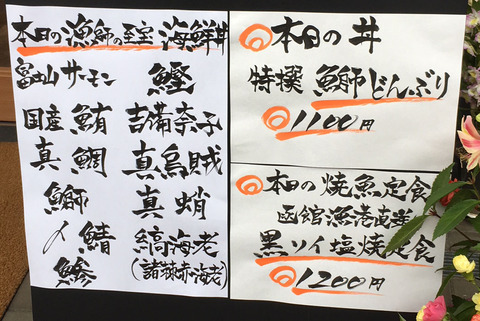 本日の漁師の至宝 海鮮丼
富士山サーモン 鰹
国産鮪 吉備奈子
真鯛 真烏賊
鰤 真蛸
〆鯖 縞海老
鰺 (諸棘赤海老)
本日の丼
特撰 鰤どんぶり
1100円
本日の焼魚定食
函館漁港直送
黒ソイ塩焼定食
1200円